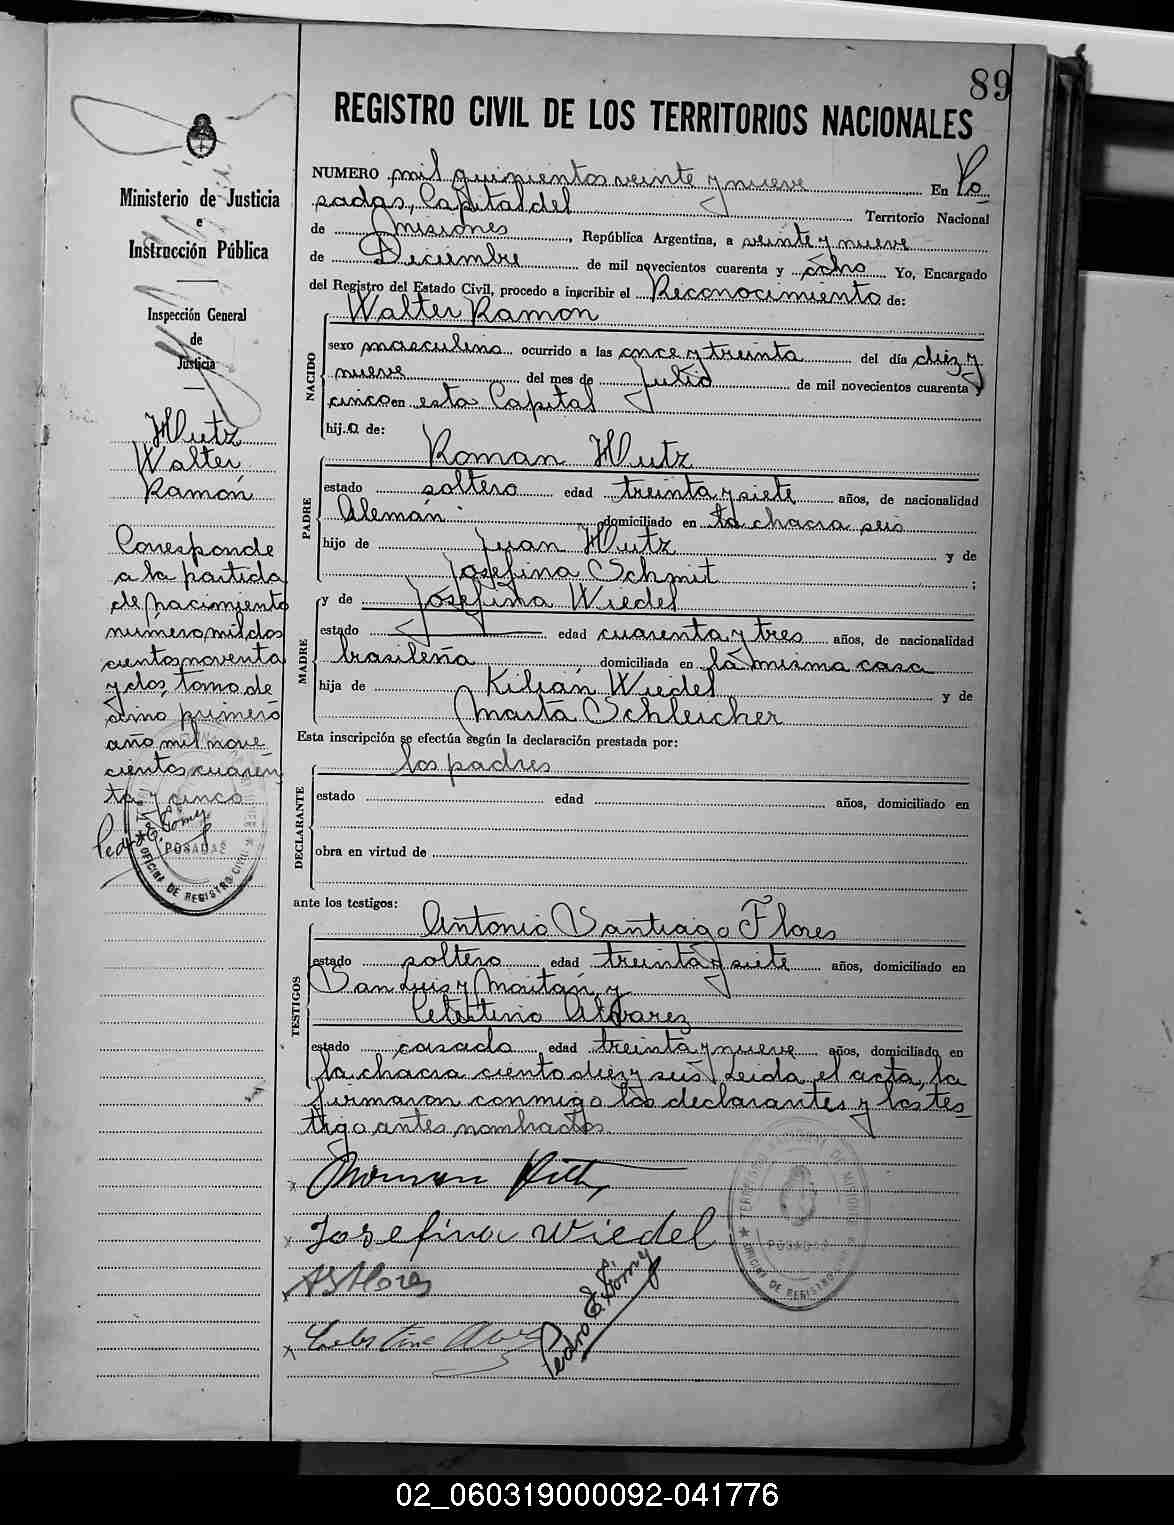 89
REGISTRO CIVIL DE LOS TERRITORIOS NACIONALES
Ministerio de Justicia
e
Instrucción Pública
Inspección General
de
Justicia
Hutz
Walter
Ramón
Corresponde
a la partida
de nacimiento
número mil dos
cientos noventa
y dos, tomo de
cimo primero
año mil nove
cientos cuaren
ta y cinco
Pedro E. Gomy
POSADAS
OFICINA DE REGISTRO CIVIL
NUMERO mil quinientos veinte y nueve En Po
sadas, Capital del Territorio Nacional
de Misiones, República Argentina, a veinte y nueve
de Diciembre de mil novecientos cuarenta y ocho Yo, Encargado
del Registro del Estado Civil, procedo a inscribir el Reconocimiento de:
NACIDO
Walter Ramon
sexo masculino ocurrido a las once y treinta del día diez y
nueve del mes de Julio de mil novecientos cuarenta y
cinco en esta Capital
hij.o de:
PADRE
Roman Hutz
estado soltero edad treinta y siete años, de nacionalidad
Alemán domiciliado en la chacra seis
hijo de Juan Hutz y de
Josefina Schmit;
MADRE
y de Josefina Wiedel
estado edad cuarenta y tres años, de nacionalidad
brasileña domiciliada en la misma casa
hija de Kilián Wiedel y de
Marta Schleicher
Esta inscripción se efectúa según la declaración prestada por:
DECLARANTE
los padres
estado edad años, domiciliado en
obra en virtud de
ante los testigos:
TESTIGOS
Antonio Santiago Flores
estado soltero edad treinta y siete años, domiciliado en
San Luis y Moritán y
Celestino Alvarez
estado casado edad treinta y nueve años, domiciliado en
la chacra ciento diez y seis Leida el acta, la
firmaron conmigo los declarantes y los tes
tigo antes nombrados
Josefina Wiedel
ASFlores
Celestino
Pedro E. Gomy
TERRITORIO NACIONAL DE MISIONES
POSADAS
OFICINA DE REGISTRO CIVIL
02_060319000092-041776